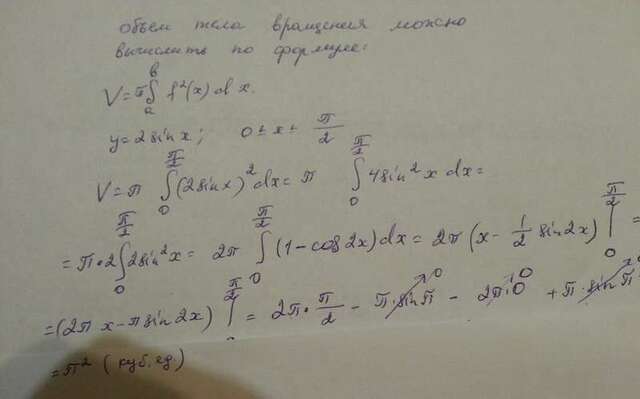 объем тела вращения можно
вычислить по формуле:
V = π∫ₐᵇ f²(x) dx.
y = 2 sin x; 0 ≤ x ≤ π/2
V = π ∫₀^(π/2) (2 sin x)² dx = π ∫₀^(π/2) 4 sin² x dx =
= π • 2 ∫₀^(π/2) 2 sin² x = 2π ∫₀^(π/2) (1 - cos 2x) dx = 2π (x - 1/2 sin 2x) |₀^(π/2) =
= (2π x - π sin 2x) |^(π/2) = 2π • π/2 - π • sin π - 2π • 0 + π • sin
= π² (куб. ед.)